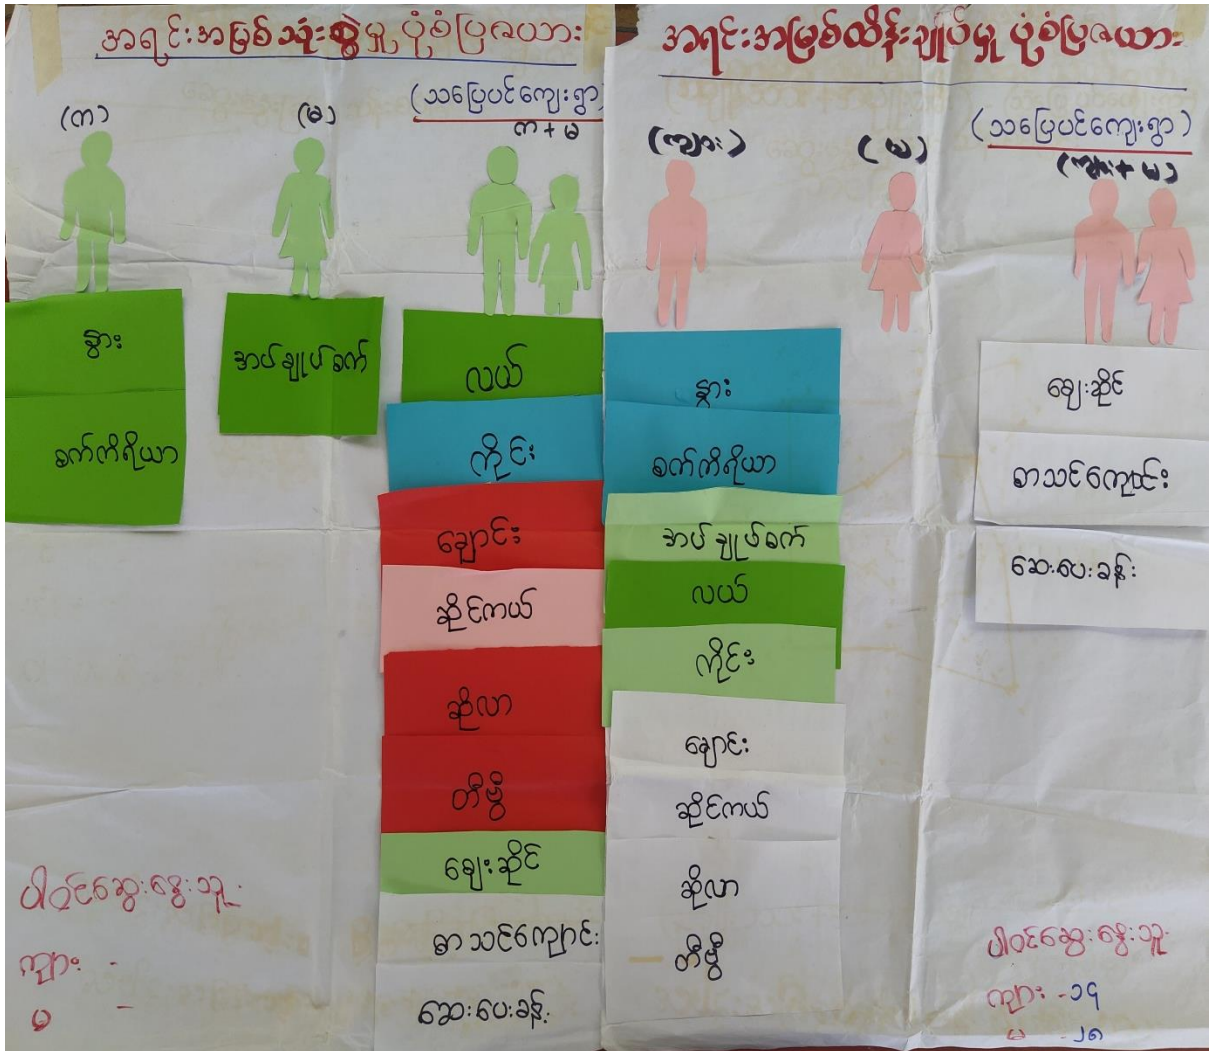 အရင်းအမြစ်သုံးစွဲမှု ပုံစံပြဇယား
(သပြေပင်ကျေးရွာ)
(က)
(မ)
က + မ
နွား
စက်ကိရိယာ
အပ်ချုပ်စက်
လယ်
ကိုင်း
ချောင်း
ဆိုင်ကယ်
ဆိုလာ
တီဗွီ
ဈေးဆိုင်
စာသင်ကျောင်း
ဆေးပေးခန်း
ပါဝင်ဆွေးနွေးသူ
ကျား -
မ -
အရင်းအမြစ်ထိန်းချုပ်မှု ပုံစံပြဇယား
(သပြေပင်ကျေးရွာ)
(ကျား)
(မ)
(ကျား + မ)
နွား
စက်ကိရိယာ
အပ်ချုပ်စက်
လယ်
ကိုင်း
ချောင်း
ဆိုင်ကယ်
ဆိုလာ
တီဗွီ
ဈေးဆိုင်
စာသင်ကျောင်း
ဆေးပေးခန်း
ပါဝင်ဆွေးနွေးသူ
ကျား -၁၄
မ -၂၈